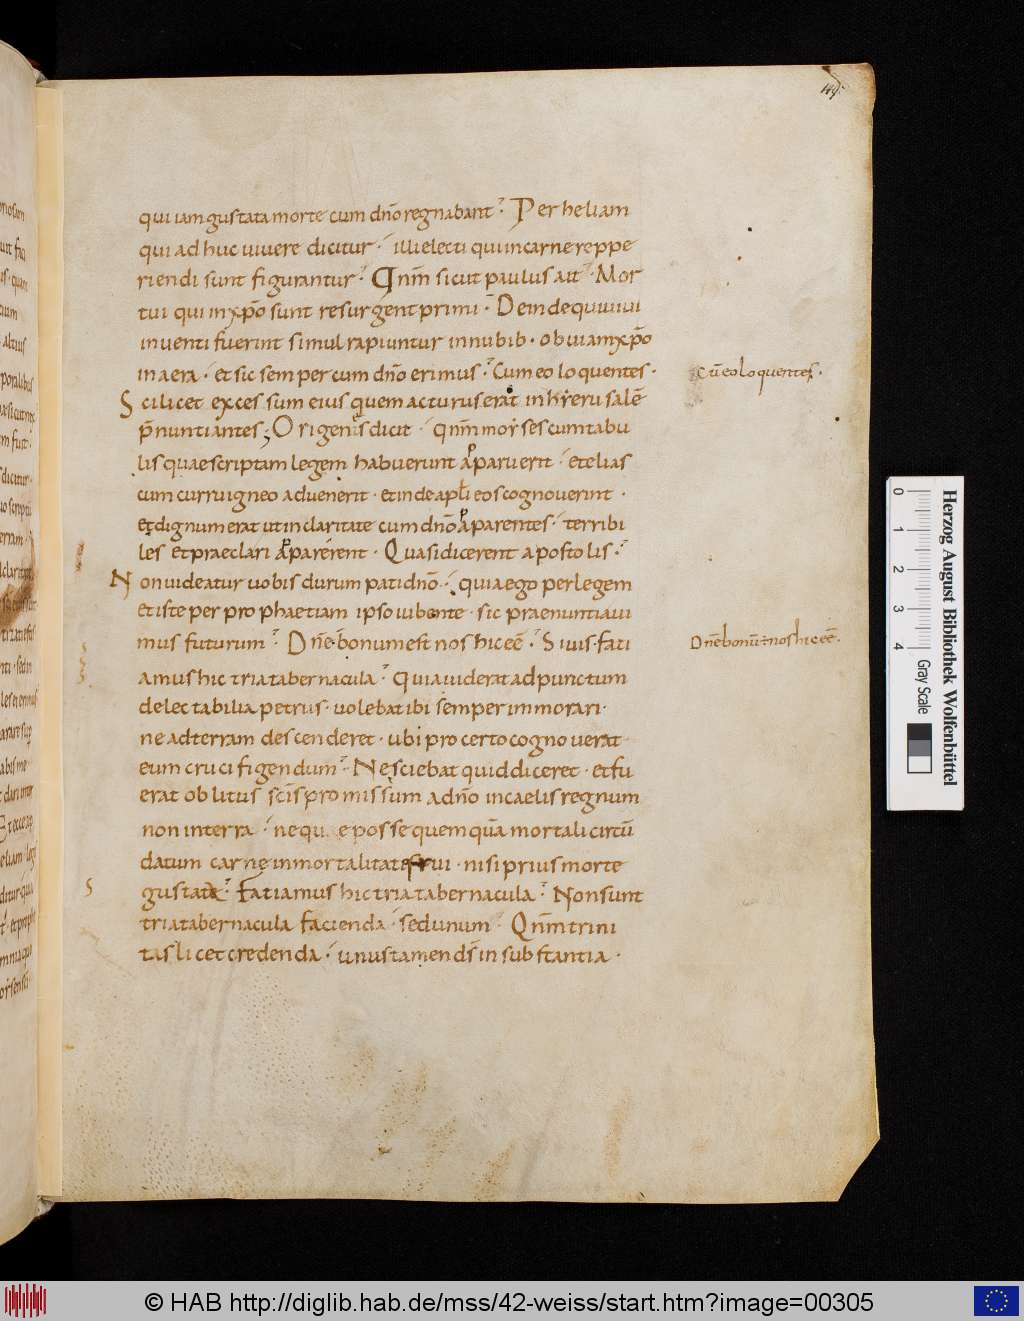 149
qui iam gustata morte cum dño regnabant. Per heliam
qui adhuc uiuere dicitur. illi electi qui in carne reppe
riendi sunt figurantur. Qnm̄ sicut paulus ait. Mor
tui qui in xp̄o sunt resurgent primi. Deinde qui uiui
inuenti fuerint simul rapiuntur in nubib. obuiam xp̄o
in aera. et sic semper cum dño erimus. Cum eo loquentes.
Cū eo loquentes.
Scilicet excessum eius quem acturus erat in hierusalē
p̄nuntiantes; Origenis dicit. qnm̄ moyses cum tabu
lis quae scriptam legem habuerunt apparuerit. et elias
cum curru igneo aduenerit. et inde apl̄i eos cognouerint.
et dignum erat ut in claritate cum dño apparentes. terribi
les et praeclari apparerent. Quasi dicerent apostolis.
Non uideatur uobis durum pati dñō. quia ego per legem
et iste per prophaetiam ipso iubente. sic praenuntiaui
mus futurum. Dñe bonum est nos hic eē. Si uis fati
Dñe bonū ÷ nos hic eē.
amus hic tria tabernacula. Quia uiderat ad punctum
delectabilia petrus. uolebat ibi semper immorari.
ne ad terram descenderet. ubi pro certo cognouerat
eum crucifigendum. Nesciebat quid diceret. et fu
erat oblitus scīs promissum a dño in caelis regnum
non in terra. neque posse quemquā mortali circū
datum carne inmortalitate frui. nisi prius morte
gustate. Fatiamus hic tria tabernacula. Non sunt
tria tabernacula facienda. sed unum. Qnm̄ trini
tas licet credenda. unus tamen ds̄ in substantia.
Herzog August Bibliothek Wolfenbüttel
0 1 2 3 4
Gray Scale
© HAB http://diglib.hab.de/mss/42-weiss/start.htm?image=00305